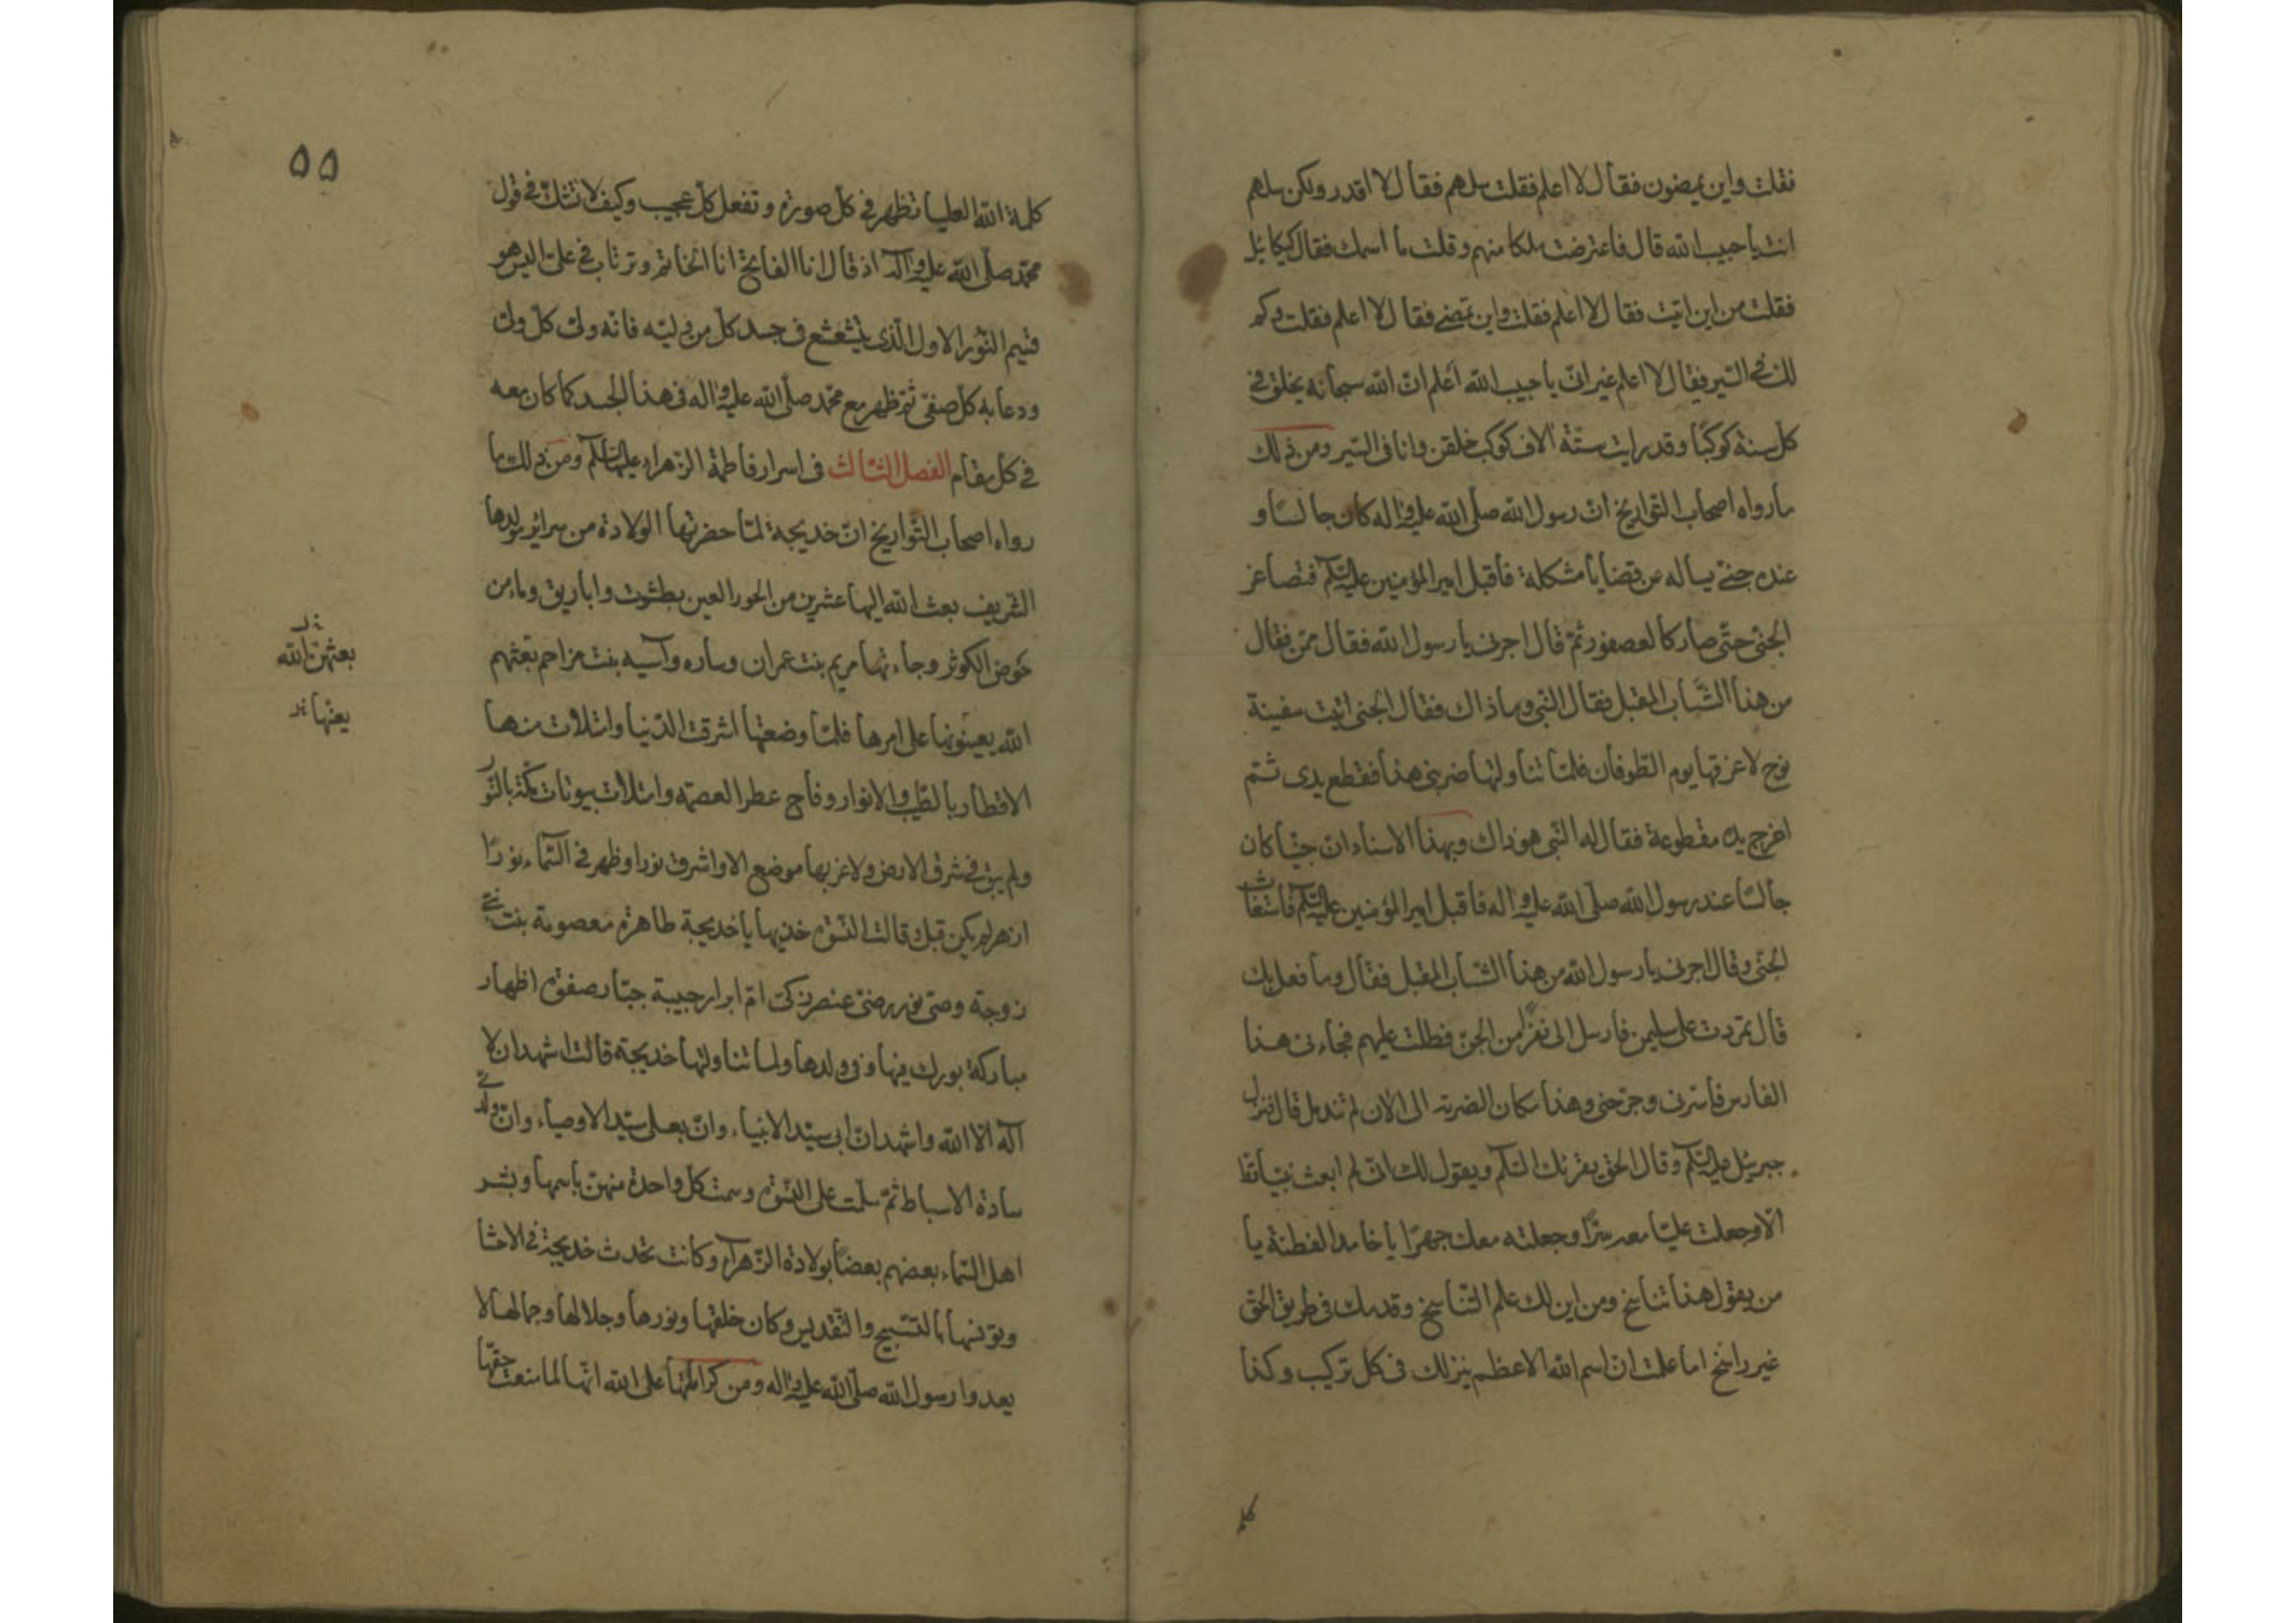 فقلت واين يمضون فقال لا اعلم فقلت سلهم فقال لا اقدر ولكن سلهم
انت يا حبيب الله قال فاعترضت ملكا منهم وقلت ما اسمك فقال كيكائيل
فقلت من اين اتيت فقال لا اعلم فقلت واين تمضى فقال لا اعلم فقلت وكم
لك فى السير فقال لا اعلم غير انى يا حبيب الله اعلم ان الله سبحانه يخلق فى
كل سنة كوكبا وقد رايت ستة الاف كوكب خلقن وانا فى السير ومن ذلك
ما رواه اصحاب التواريخ ان رسول الله صلى الله عليه واله كان جالسا و
عنده جنى يساله عن قضايا مشكلة فاقبل امير المؤمنين عليه السلام فتصاغر
الجنى حتى صار كالعصفور ثم قال اجرنى يا رسول الله فقال ممن فقال
من هذا الشاب المقبل فقال النبى وما ذاك فقال الجنى اتيت سفينة
نوح لاغرقها يوم الطوفان فلما تناولتها ضربنى هذا فقطع يدى ثم
اخرج يده مقطوعة فقال له النبى هو ذاك وبهذا الاسناد ان جنيا كان
جالسا عند رسول الله صلى الله عليه واله فاقبل امير المؤمنين عليه السلام فاستغاث
الجنى وقال اجرنى يا رسول الله من هذا الشاب المقبل فقال وما فعل بك
قال تمردت على سليمن فارسل الى نفرا من الجن فطلت عليهم فجاءنى هذا
الفارس فاسرنى وجرحنى وهذا مكان الضربة الى الان لم تندمل قال فنزل
جبرئيل عليه السلام وقال الحق يقرئك السلام ويقول لك انى لم ابعث نبيا قط
الا وجعلت عليا معه سرا وجعلته معك جهرا يا خامد الفطنة يا
من يقول هذا تناسخ ومن اين لك علم التناسخ وقدمك فى طريق الحق
غير راسخ اما علمت ان اسم الله الاعظم ينزلك فى كل تركيب وكذا
كلمة الله العليا تظهر فى كل صورة وتفعل كل عجيب وكيف لا تشك فى قول
محمد صلى الله عليه واله اذ قال انا الفاتح انا الخاتم وترتاب فى على اليس هو
قسيم النور الاول الذى يشعشع فى جسد كل من وليه فانه ولى كل ولى
ودعا به كل صفى ثم ظهر مع محمد صلى الله عليه واله فى هذا الجسد كما كان معه
فى كل مقام الفصل الثالث فى اسرار فاطمة الزهراء عليها السلام ومن ذلك ما
رواه اصحاب التواريخ ان خديجة لما حضرتها الولادة من سراير مولدها
الشريف بعث الله اليها عشرين من الحور العين بطشوت واباريق وماء من
حوض الكوثر وجاءتها مريم بنت عمران وساره وآسيه بنت مزاحم بعثهم
الله يعينونها على امرها فلما وضعتها اشرقت الدنيا وامتلات منها
الاقطار بالطيب والانوار وفاح عطر العصمه وامتلات بيوتات مكة بالنور
ولم يبق فى شرق الارض ولا غربها موضع الا واشرق نورا وظهر فى السماء نورا
ازهر لم يكن قبل قالت النسوة خذيها يا خديجة طاهرة معصومة بنت نبى
زوجة وصى نور رضى عنصر زكى ام ابرار حبيبة جبار صفوة اطهار
مباركة بورك فيها وفى ولدها ولما تناولتها خديجة قالت اشهد ان لا
اله الا الله واشهد ان ابى سيد الانبياء وان بعلى سيد الاوصياء وان ولدى
سادة الاسباط ثم سلمت على النسوة وسمت كل واحدة منهن باسمها وبشر
اهل السماء بعضهم بعضا بولادة الزهراء وكانت تحدث خديجة فى الاحشا
وتونسها بالتسبيح والتقديس وكان خلقها ونورها وجلالها وجمالها لا
يعدوا رسول الله صلى الله عليه واله ومن كراماتها على الله انها لما منعت حقها
كلمة
٥٥
بعثهن الله
يعنها